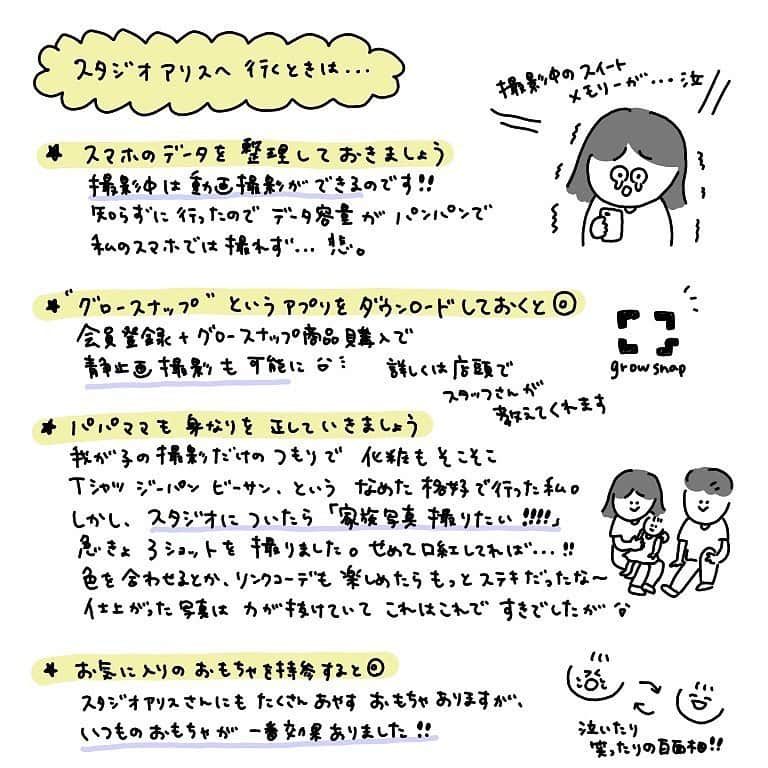 スタジオアリスへ 行くときは...
撮影中のスイート
メモリーが...泣
★ スマホのデータを 整理しておきましょう
撮影中は動画撮影ができるのです!!
知らずに行ったので データ容量が パンパンで
私のスマホでは撮れず... 悲。
★ “グロースナップ” というアプリを ダウンロードしておくと◎
会員登録+グロースナップ商品購入で
静止画撮影も可能に
growsnap
詳しくは店頭で
スタッフさんが
教えてくれます
★ パパママも 身なりを 正していきましょう
我が子の撮影だけのつもりで 化粧もそこそこ
Tシャツ ジーパン ビーサン、という なめた格好で行った私。
しかし、スタジオについたら「家族写真 撮りたい!!!!」
急きょ 3ショットを 撮りました。せめて口紅してれば...!!
色を合わせるとか、リンクコーデも 楽しめたらもっとステキだったな〜
仕上がった写真は 力が抜けていて これはこれで すきでしたが
★ お気に入りの おもちゃを持参すると◎
スタジオアリスさんにも たくさん あやす おもちゃ ありますが、
いつものおもちゃが 一番効果ありました!!
泣いたり
笑ったりの百面相!!